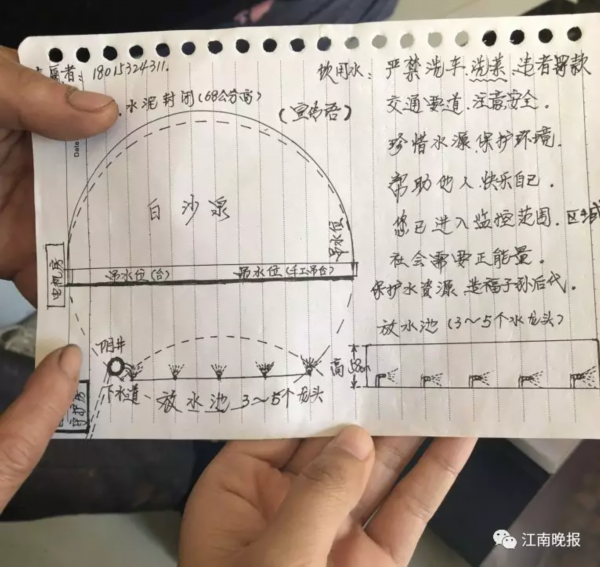 者：18015324311.
水泥封闭（68公分高）
（宣传语）
白沙泉
吊水位
吊水位（台）
吊水位（手工吊台）
电机房
阴井
下水道
放水池 3～5个龙头
高58cm
守护房
饮用水：严禁洗车.洗菜.违者罚款
交通要道.注意安全.
珍惜水源.保护环境.
帮助他人.快乐自己.
您已进入监控范围.区域
社会需要正能量.
保护水资源.造福子孙后代.
放水池（3～5个水龙头）
江南晚报